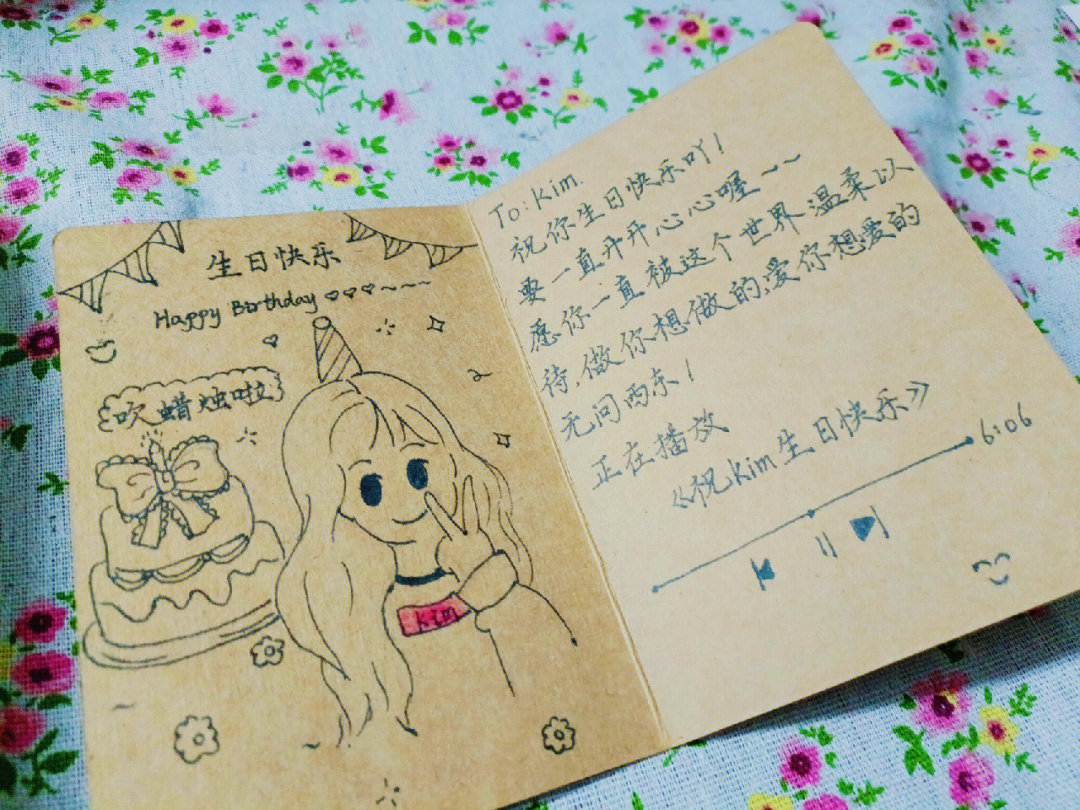 生日快乐
Happy Birthday
吹蜡烛啦
kim
To: Kim.
祝你生日快乐吖!
要一直开开心心喔~~
愿你一直被这个世界温柔以
待,做你想做的,爱你想爱的
无问西东!
正在播放
《祝kim生日快乐》
6:06